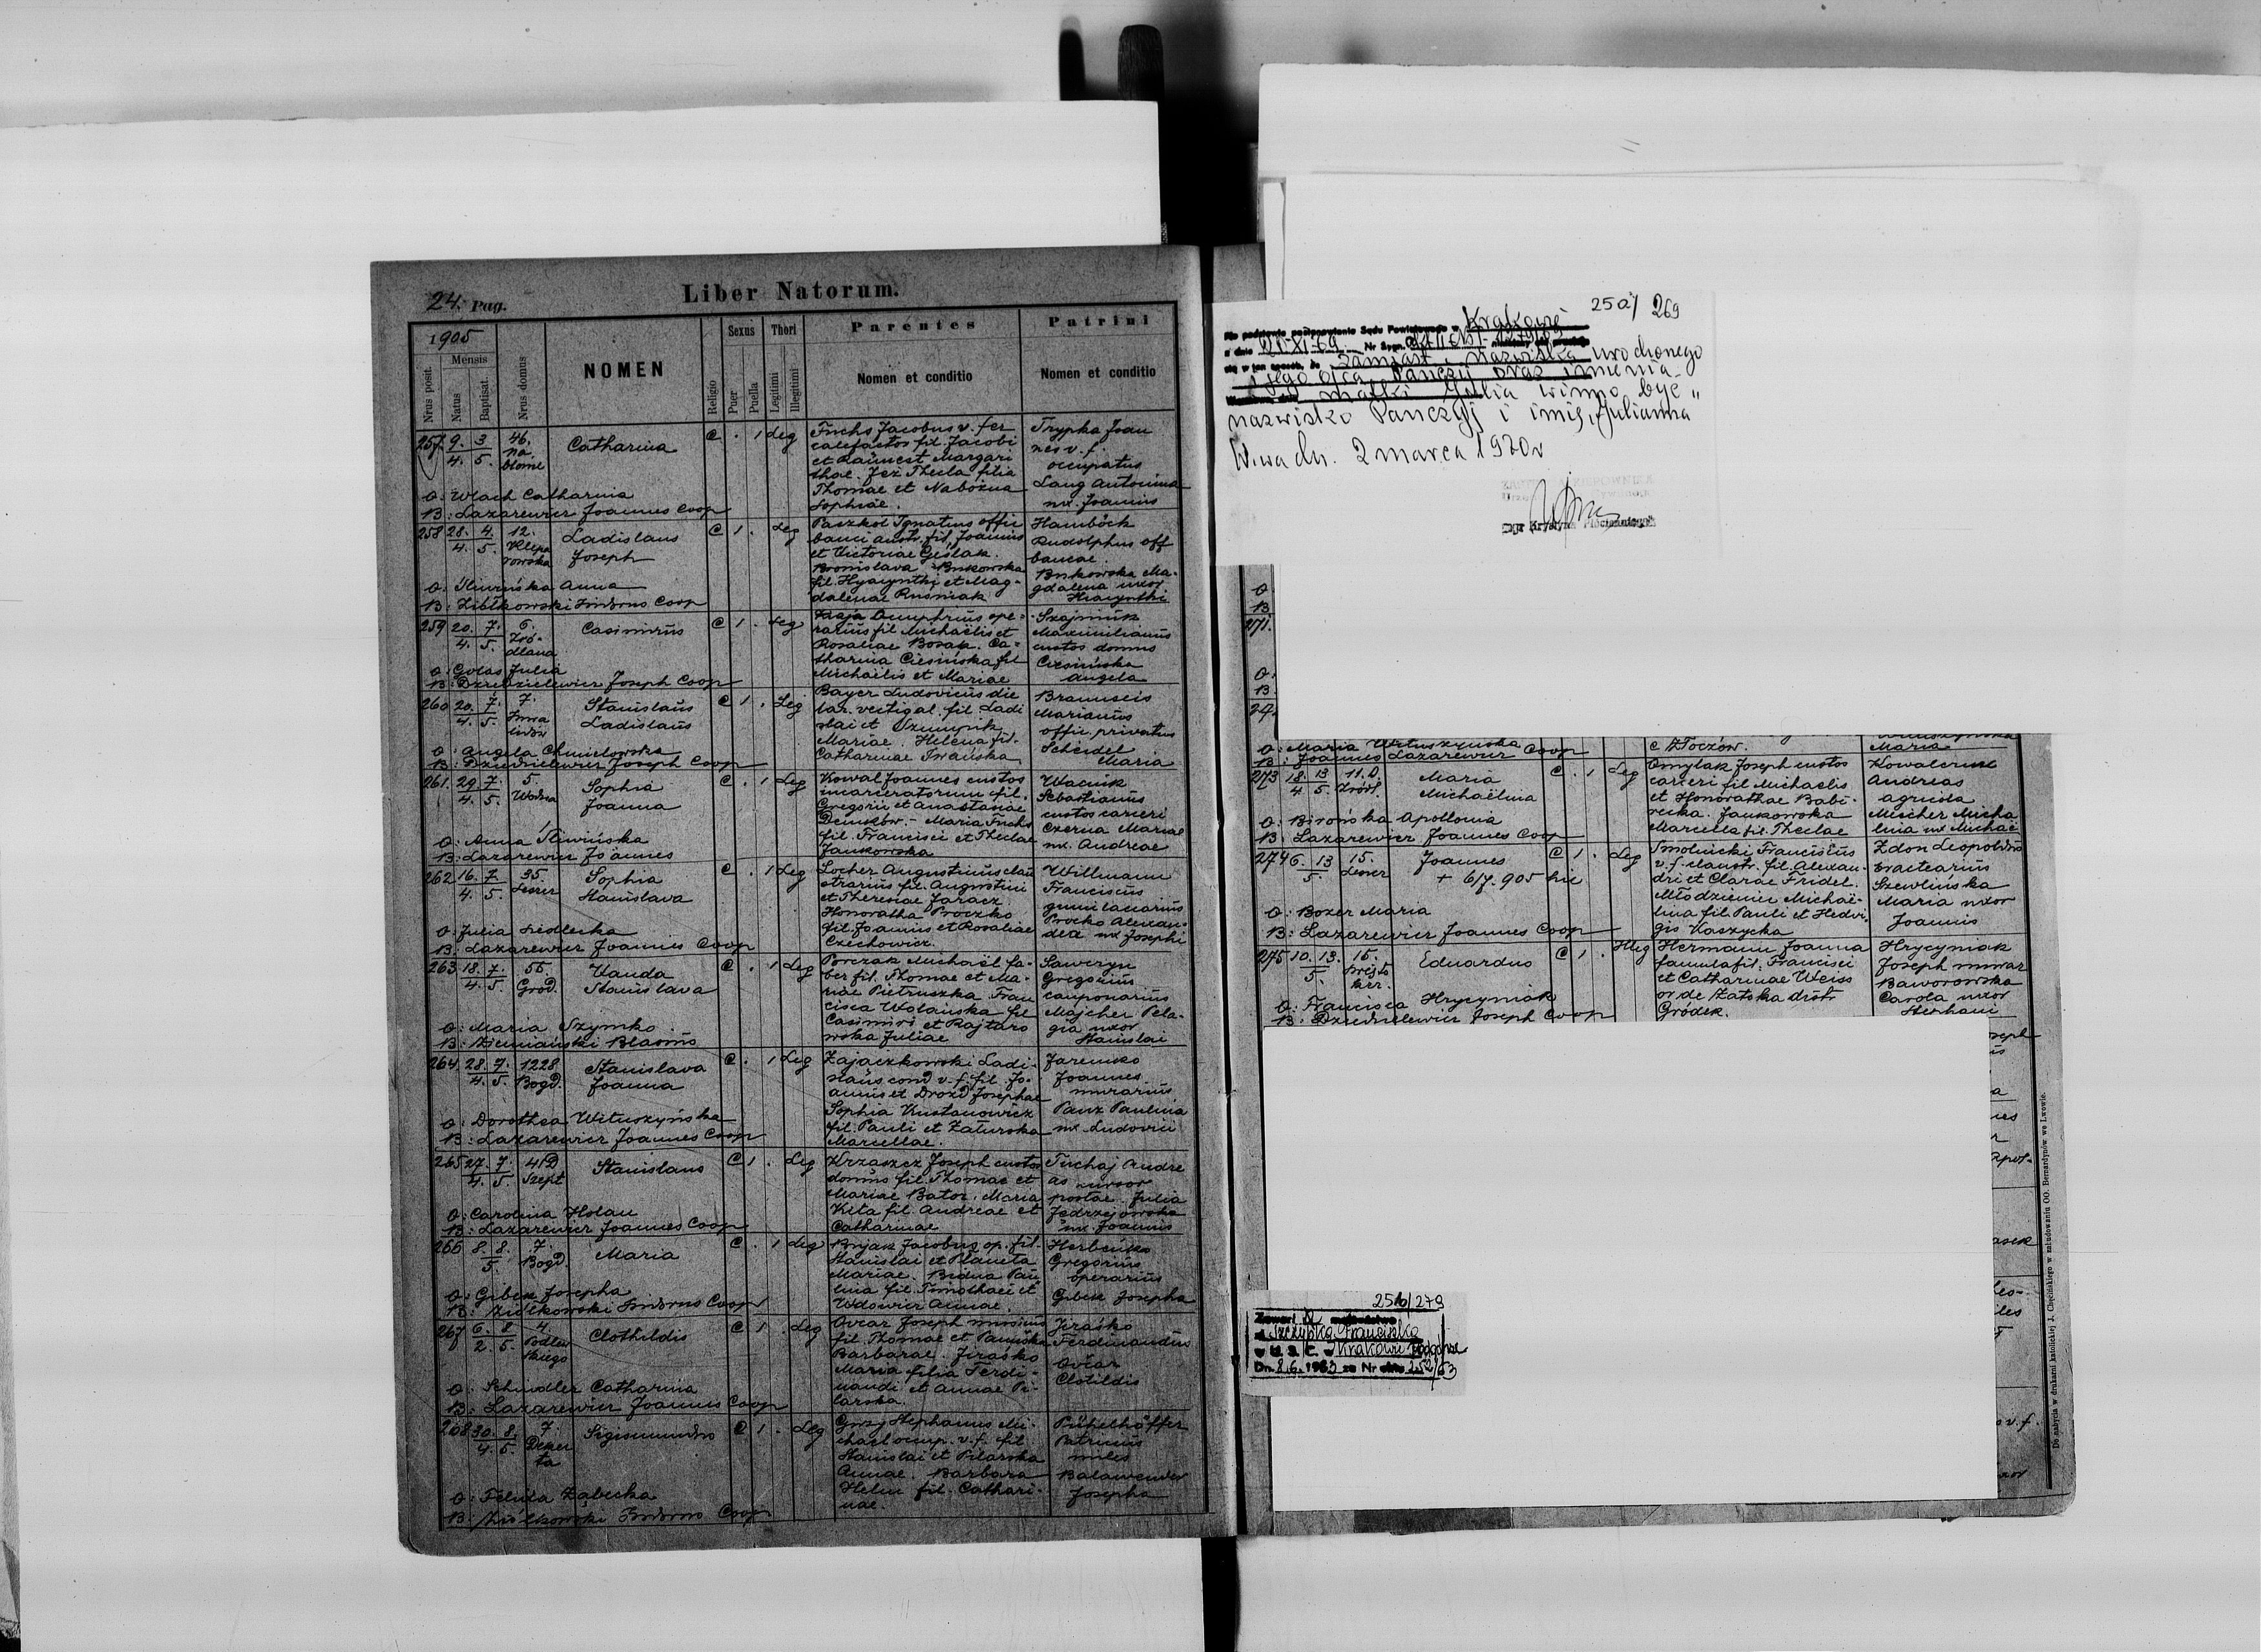 24. Pag.
Liber Natorum.
1905
Mensis
Nrus posit.
Natus
Baptisat.
Nrus domus
NOMEN
Religio
Sexus
Puer
Puella
Thori
Legitimi
Illegitimi
Parentes
Nomen et conditio
Patrini
Nomen et conditio
257. 9. 3 46. Catharina C . 1 Leg
4. 5. na błonie
Fuchs Jacobus v. fer
calefactor fil. Jacobi
et Margari
thae. Jeż Thecla filia
Thomae et Nabożna
Sophiae.
Trypka Joan
nes v. f.
occupatus
Lang Antonina
ux. Joannis
O: Wlach Catharina
B: Lazarewicz Joannes Coop
258 28. 4. 12. Ladislaus C 1 . Leg
4. 5. Klepa
rowska Joseph
Paszkot Ignatius offic
banci austr. fil. Joannis
et Victoriae Geślak.
Bronislava Bukowska
fil. Hyacynthi et Mag-
dalenae Rusniak
Hamböck
Rudolphus off
bancae.
Bukowska Ma-
gdalena uxor
Hiacynthi
O: Sliwińska Anna
B: Ziółkowski Coop
259 20. 7. 6. Casimirus C 1 . Leg
4. 5. Zró-
dlana
Onuphrius ope-
rarius fil Michaëlis et
Rosaliae Bosak. Ca-
tharina Ciesińska fil
Michaëlis et Mariae
Szajniuk
Maximilianus
custos domus
Ciesińska
Angela
O: Golas Julia
B: Dziedzielewicz Joseph Coop
260 20. 7. 7. Stanislaus C 1 . Leg
4. 5. Ladislaus
Bayer Ludovicus die
tar. vectigal. fil. Ladi
slai et
Mariae. Helena fil.
Catharinae Iwańska
Marianus
offic. privatus
Scheidel
Maria
O: Angela Chmielowska
B: Dziedzielewicz Joseph Coop
261. 29. 7. 5. Sophia C . 1 Leg
4. 5. Wodna Joanna
Kowal Joannes custos
incarceratorum fil.
Gregorii et Anastasiae
Demków. - Maria Fuchs
fil. Francisci et Theclae
Jankowska
Wacnik
Sebastianus
custos carceri
Czerna Mariae
ux. Andreae
O: Anna Sliwińska
B: Lazarewicz Joannes
262 16. 7. 35. Sophia C . 1 Leg
4. 5. Stanislava
Locher Augustinus clau
strarius fil. Augustini
et Theresiae Jaracz.
Honoratha Proczko
fil. Joannis et Rosaliae
Czechowicz.
Willmann
Franciscus
Procko Alexan-
dra ux Josephi
O: Julia Siedlecka
B: Lazarewicz Joannis Coop
263 18. 7. 55. Wanda C . 1 Leg
4. 5. Gród. Stanislava
Porczak Michaël fa-
ber fil. Thomae et Ma-
riae Pietruszka. Fran
cisca Wolańska fil
Casimiri et Rajtaro
wska Juliae
Saweryn
Gregorius
cauponarius
Majcher Pela-
gia uxor
Stanislai
O: Maria Szymko
B: Ziemiański Blasius
264. 28. 7. 1228 Stanislava C . 1 Leg
4. 5. Bogd. Joanna
Zajączkowski Ladi-
slaus cond v. f. fil. Jo-
annis et Drozd Josephae
Sophia Kustanowicz
fil. Pauli et Zaturska
Marcellae.
Jaremko
Joannes
murarius
Panz Paulina
ux. Ludovici
O: Dorothea Wituszyńska
B: Lazarewicz Joannes Coop
265 27. 7. 41D Stanislaus C 1 . Leg
4. 5. Szept
Krzaszcz Joseph custos
domus fil. Thomae et
Mariae Bator. Maria
Kita fil. Andreae et
Catharinae
Tuchaj Andre
as cursor
postae. Julia
Jędrzejowska
ux. Joannis
O: Carolina Holan
B: Lazarewicz Joannes Coop
266 8. 8. 7. Maria C . 1 Leg
5. Bogd.
Bujak Jacobus op. fil.
Stanislai et Planeta
Mariae. Bedna Pau
lina fil. Timothaei et
Wdowicz Annae.
Herbeńko
Gregorius
operarius
Gibek Josepha
O: Gibek Josepha
B: Ziółkowski Coop
267 6. 8 4. Clothildis C 1 . Leg
2. 5. Podlew
skiego
Ovčar Joseph musicus
fil. Thomae et
Barbarae. Jiraśko
Maria filia Ferdi-
nandi et Annae Pi-
larska.
Jiraśko
Ferdinandus
Ovčar
Clotildis
O: Schindler Catharina
B: Lazarewicz Joannis Coop
268 30. 8. 7. Sigismundus C 1 . Leg
4. 5. Dezer
ta
Stephanus Mi-
chael occup. v. f. fil
Stanislai et Pilarska
Annae. Barbara
Helm fil. Cathari-
nae.
Pühelhöffer
Patricius
miles
Balawender
Josepha
O: Felicia Ząbecka
B: Ziółkowski Coop
25a/ 269
Na podstawie postanowienia Sądu Powiatowego w Krakowie
z dnia Nr Sygn.
się w ten sposób, że zamiast nazwiska urodzonego
i jego ojca Panczij oraz imienia
matki Julia winno być "
nazwisko Panczyj i imię Julianna
W-wa dn. 2 marca 1970r
O
B
271.
O.
B.
27
O: Maria Wituszyńska
B: Joannes Lazarewicz Coop
c Złoczów.
Maria
273 18. 13 11.D. Maria C . 1 Leg
4 5. Zródł. Michaëlina
Omylak Joseph custos
carceri fil Michaelis
et Honorathae Babi-
recka. Jankowska
Marcella fil. Theclae
Kowalczuk
Andreas
agricola
Mischer Micha
lina ux Michaë
O: Birońska Apollonia
B: Lazarewicz Joannes Coop
274 6. 13 15. Joannes C 1 . Leg
5. + 6/7. 905 hic
Smolnicki Franciscus
v. f. claustr. fil. Alexan-
dri et Clarae Fridel.
Młodziemier Michaë-
lina fil. Pauli et Hedvi
gis Kaszycka
Zdon Leopoldus
bractearius
Szewlińska
Maria uxor
Joannis
O: Boxer Maria
B: Lazarewicz Joannes Coop
275 10. 13. 16. Eduardus C 1 . Illeg
5.
Hermann Joanna
famula fil. Francisci
et Catharinae Weiss
or de Szatska distr
Gródek.
Hrycyniak
Joseph murar
Baworowska
Carola uxor
Stephani
O: Francisca Hrycyniak
B: Dziedzielewicz Joseph Coop
25b/279
Zawarł małżeństwo
z Szczypką Franciszką
w U. S. C. w Krakowie Podgórze
Dn. 8.6.1963 za Nr aktu 252/63
Do nabycia w drukarni katolickiej J. Chęcińskiego w zabudowaniu OO. Bernardynów we Lwowie.